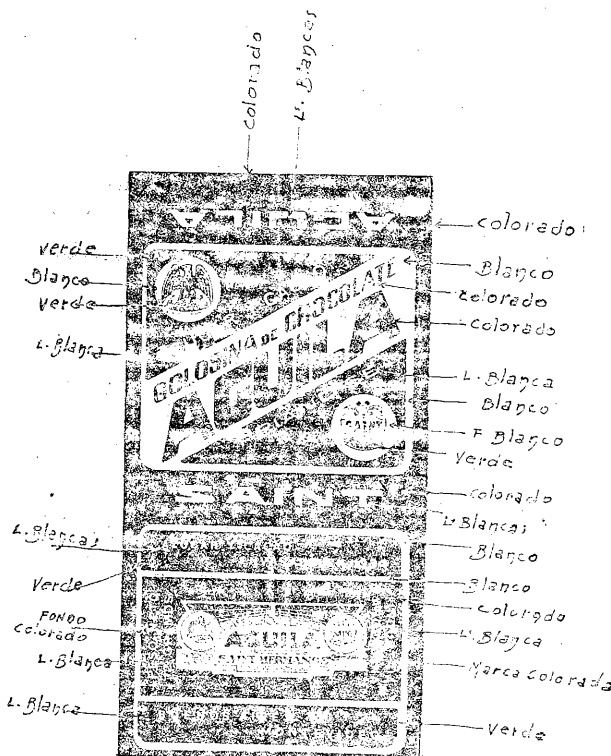 colorado
L. Blancas
AGUILA
colorado
verde
Blanco
Blanco
verde
colorado
GOLOSINA DE CHOCOLATE
colorado
L. Blanca
AGUILA
L. Blanca
Blanco
F. Blanco
Verde
SAINT
colorado
L. Blancas
L. Blancas
Blanco
Verde
Blanco
colorado
FONDO
colorado
AGUILA
L. Blanca
SAINT HERMANOS
L. Blanca
Marca colorada
L. Blanca
Verde